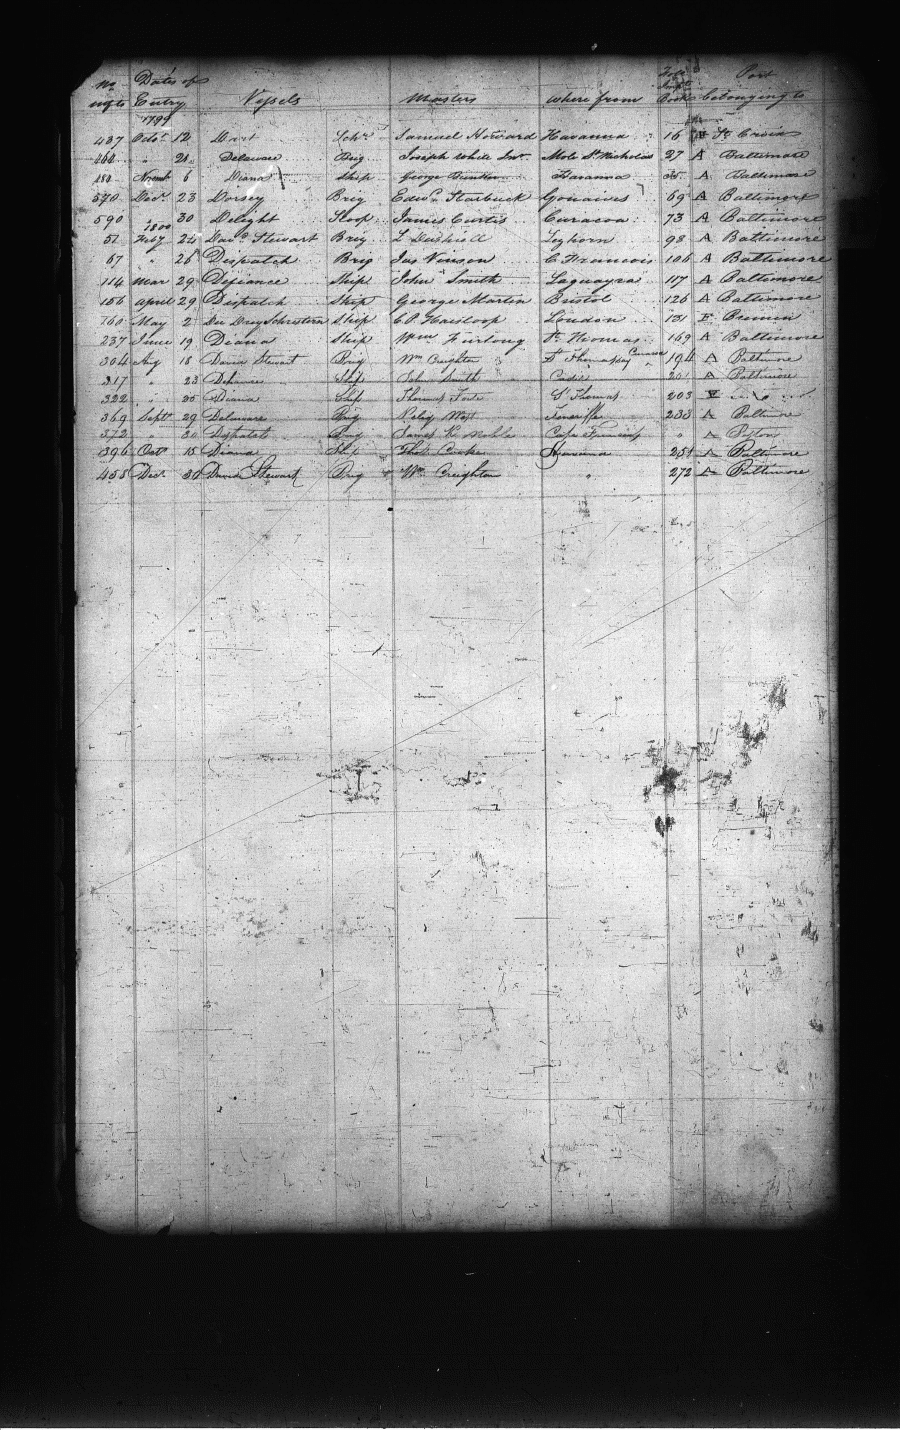 No Dates of Port
Entry Vessels Masters where from Book belonging to
1799
437 Octr 12 Dart Schr Samuel Howard Havanna 16 St Croix
462 " 21 Delaware Brig Joseph White Junr Mole St Nicholas 27 A Baltimore
480 Novemb 6 Diana Ship George Bunker Havanna 35 A Baltimore
570 Decr 23 Dorsey Brig Edwd Starbuck Gonaives 69 A Baltimore
590 " 30 Delight Sloop James Curtis Curacoa 73 A Baltimore
1800
51 Feby 24 Davd Stewart Brig L Dashiell Leghorn 98 A Baltimore
67 " 26 Despatch Brig Jas Vinson C Francois 106 A Baltimore
114 Mar 29 Defiance Ship John Smith Laguayra 117 A Baltimore
156 April 29 Dispatch Ship George Martin Bristol 126 A Baltimore
160 May 2 Die Drey Schwestern Ship C P Haesloop London 131 F Bremen
237 June 19 Diana Ship Wm Furlong St Thomas 169 A Baltimore
304 Aug 18 David Stewart Brig Wm Creighton St Thomas & Curracoa 194 A Baltimore
317 " 23 Defiance Ship John Smith Cadiz 201 A Baltimore
322 " 25 Diana Ship Thomas St Thomas 203
369 Sept 29 Delaware Brig Peleg West Teneriffe 233 A Baltimore
372 30 Dispatch Brig James K Noble Cape Francois " A Boston
396 Octr 15 Diana Ship Thos Cooke Havana 251 A Baltimore
455 Decr 30 David Stewart Brig Wm Creighton " 272 A Baltimore